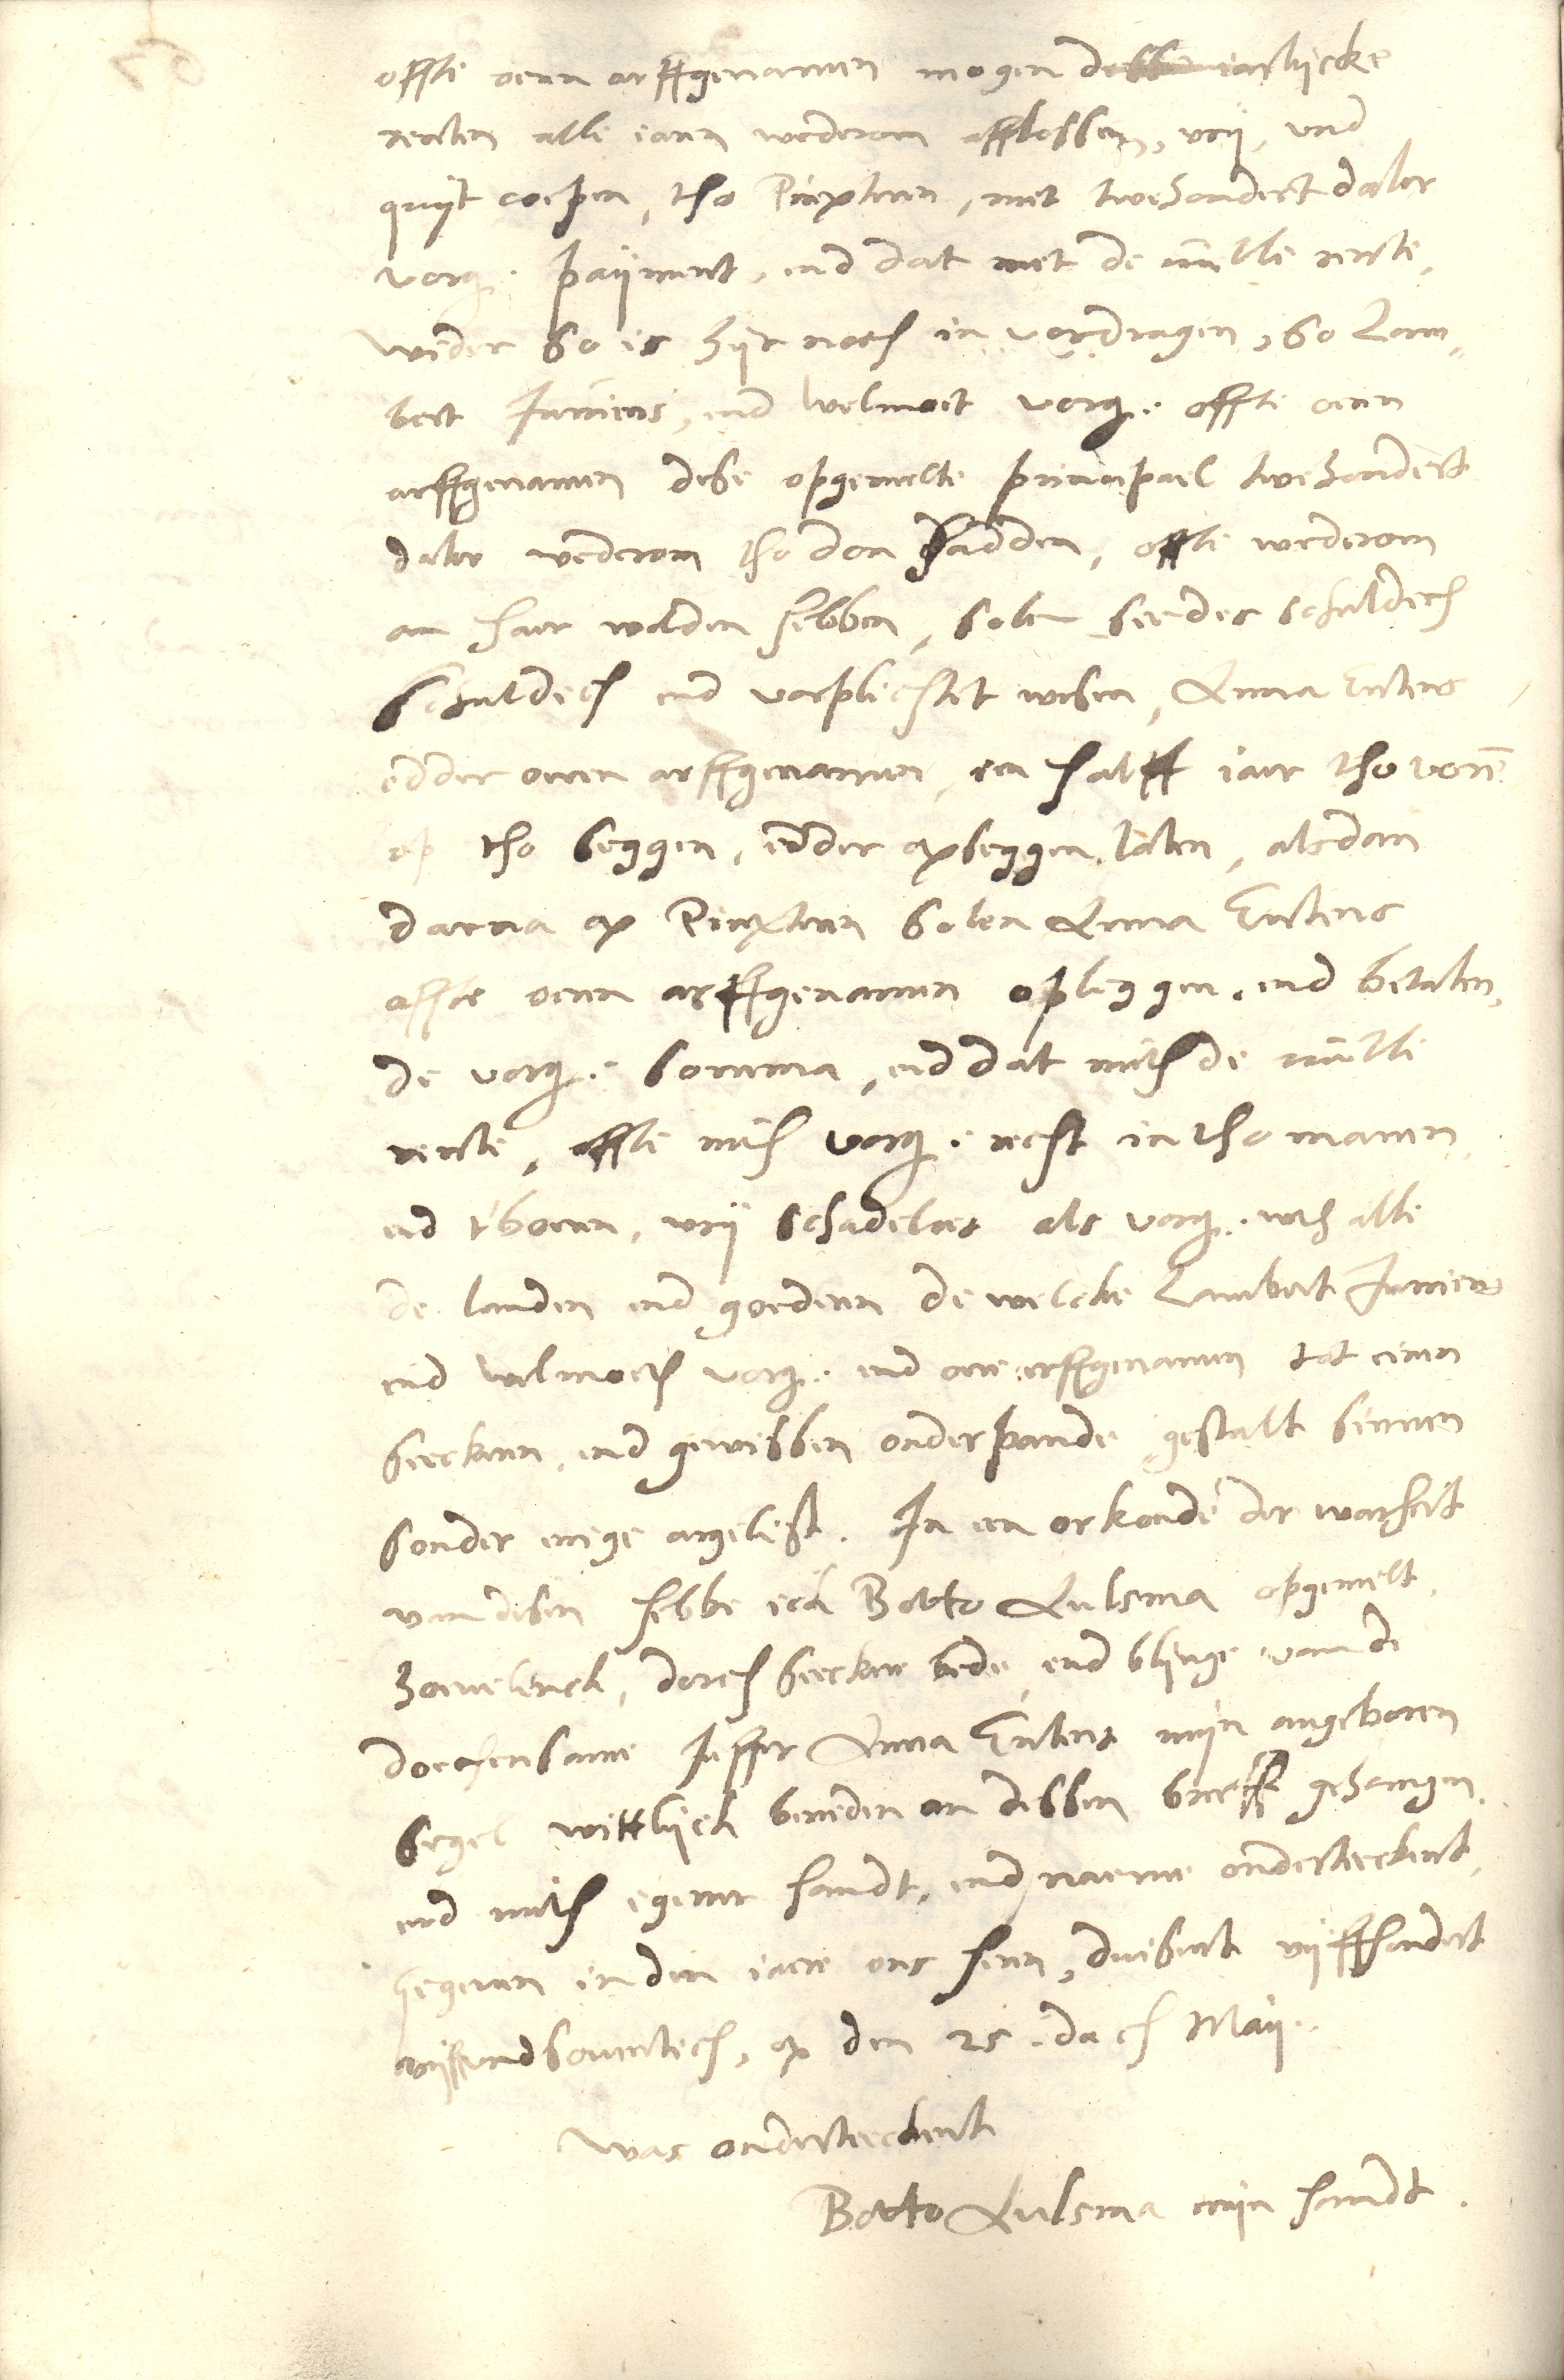 offte oeren arffgenamen mogen desse iarlijcke
renten alle iaren wederom afflossen, vrij, und
quijt coepen, tho Pinxteren, met twehondert daler
vorg. paijment, end dat met de vulle rente,
wider so is hijr noch in vordragen, so Lam„
bert Jurriens, end Welmoet vorg. offte oeren
arffgenamen dese opgemelte principael twehondert
daler wederom tho don hadden, offte wederom
an haer wolden hebben, solen sie des schuldech
schuldech end vorplichtet wesen, Anna Entens
edder oeren arffgenamen, een halff iaer tho voren
op tho seggen, edder opseggen laten, alsdan
darna op Pinxteren solen Anna Entens
offte oeren arffgenamen opleggen, end betalen,
de vorg. somma, end dat mith de vulle
rente, offte mith vorg. recht in tho manen
end t'boeren, vrij schadeloes als vorg. uth alle
de landen end goederen de welcke Lambert Jurriens
end Welmoeth vorg. end oere erffgenamen tot einen
seeckeren, end gewissen onderpande gestalt sinnen
sonder enige argelist. In een orkonde der warheit
van desen hebbe ick Botto Lulsma opgemelt,
hovelinck, dorch seeckere bede, end vlijtige van de
doechensame Juffer Anna Entens mijn angeboren
segel wittlijck beneden an dessen brieff gehangen,
end mith egener handt, end naeme onderteeckent,
Gegeven in den iaere ons heren, duisent vijffhondert
vijffundsoventich, op den 25. dach Maij.
Was onderteeckent
Botto Lulsma mijn handt.